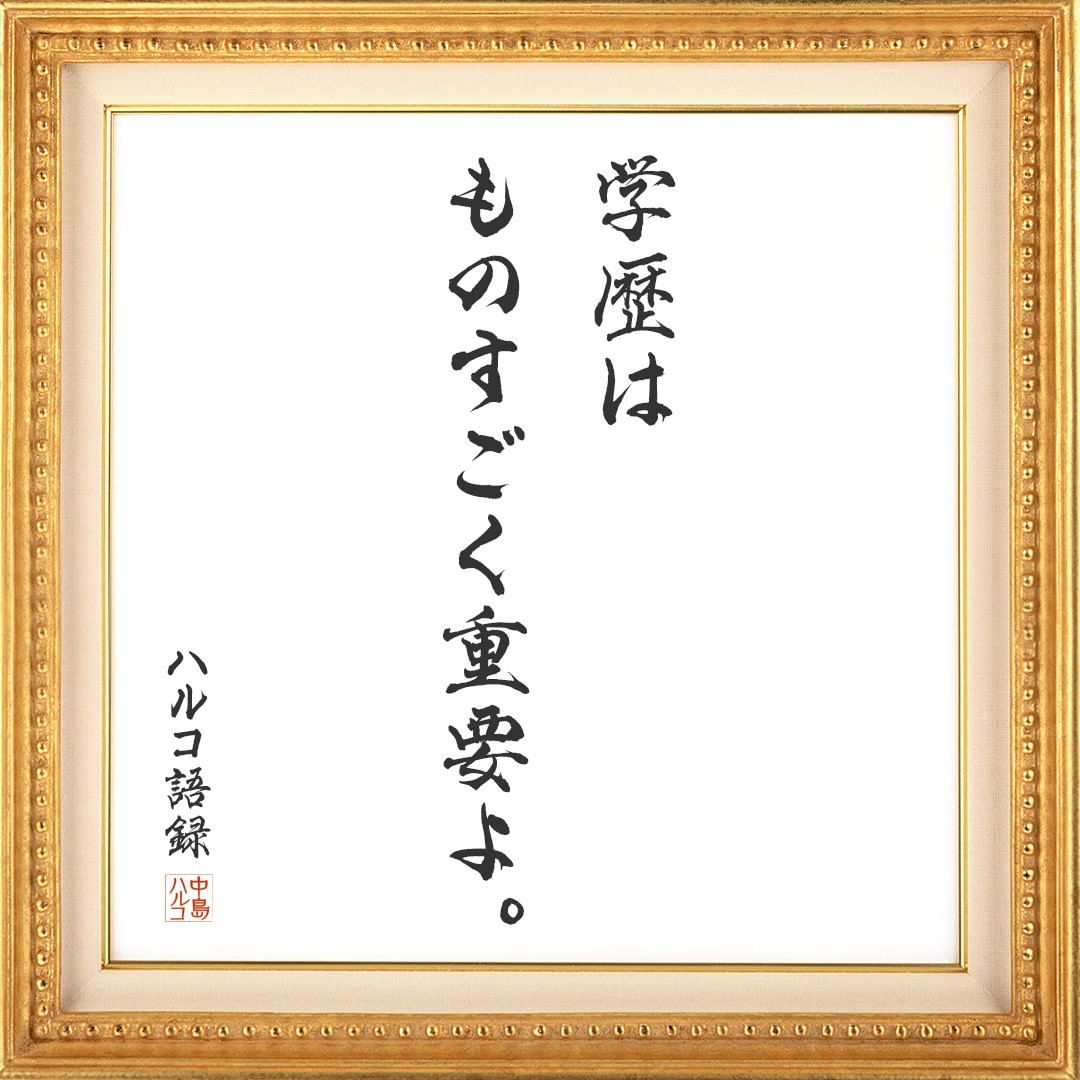 学歴は
ものすごく重要よ。
ハルコ語録
中島
ハルコ